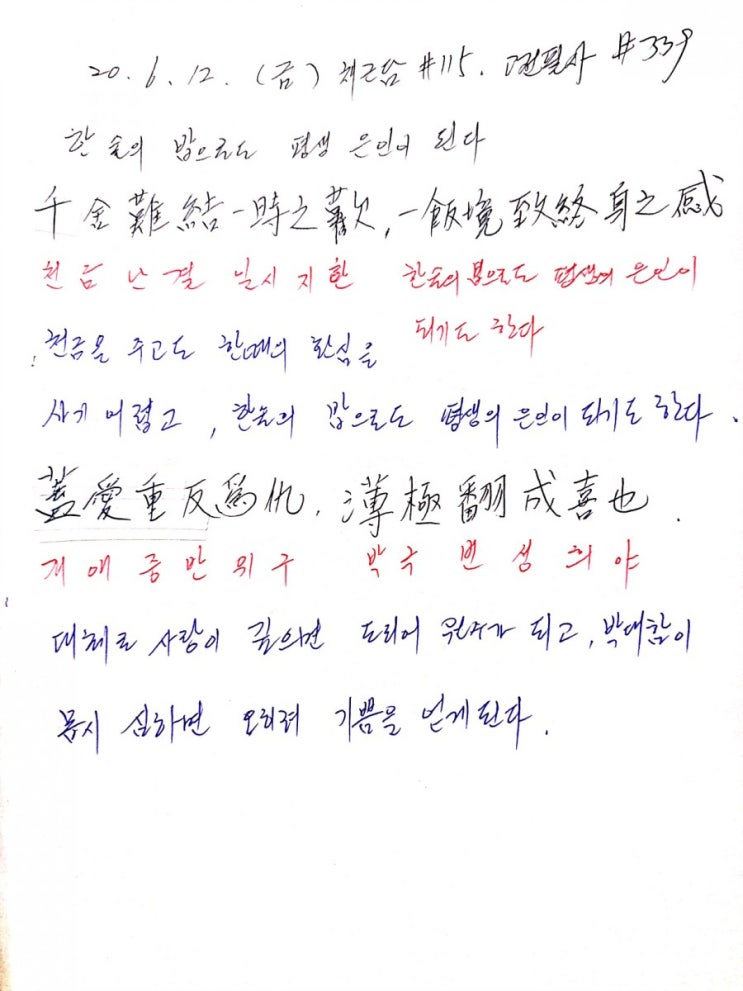 20. 6. 12. (금) 채근담 #115. 연필사 #339
한 술의 밥으로도 평생 은인이 된다
千金難結一時之歡, 一飯境致終身之感
천 금 난 결 일 시 지 환 한술의 밥으로도 평생의 은인이
되기도 한다
천금을 주고도 한때의 환심을
사기 어렵고, 한술의 밥으로도 평생의 은인이 되기도 한다.
蓋愛重反爲仇, 薄極翻成喜也.
개 애 중 반 위 구 박 극 번 성 희 야
대체로 사랑이 깊으면 도리어 원수가 되고, 박대함이
몹시 심하면 오히려 기쁨을 얻게된다.